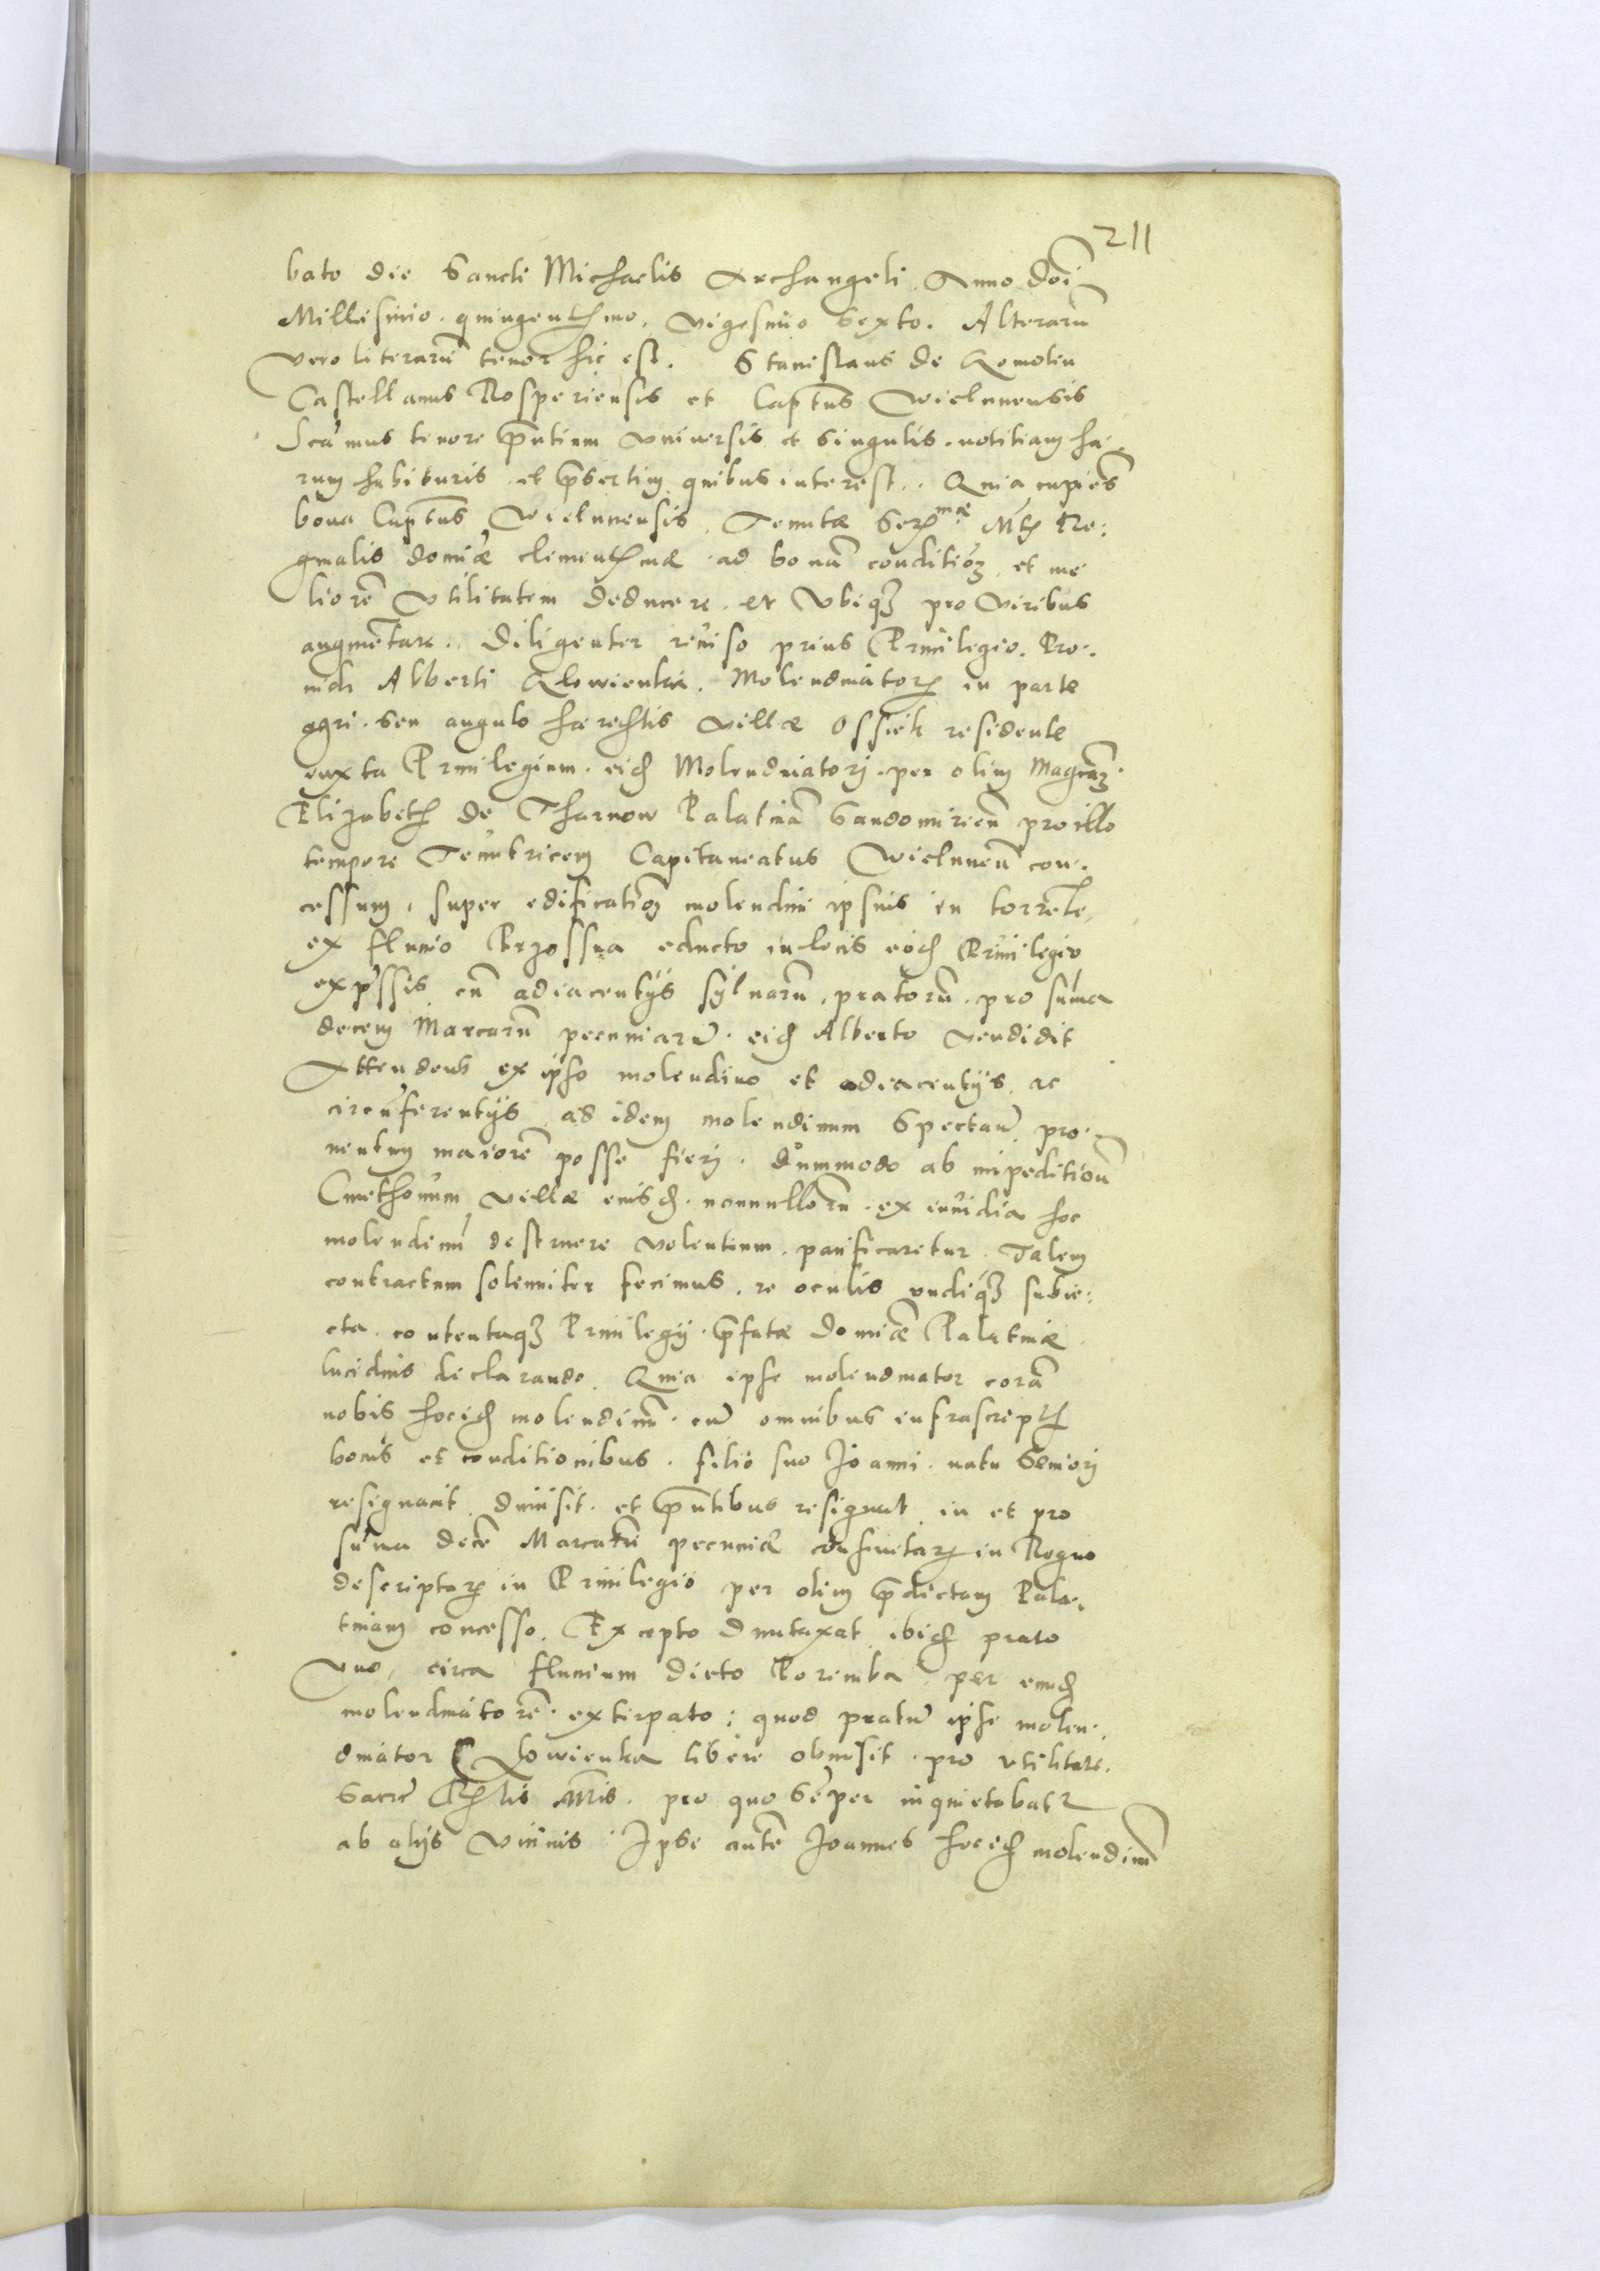 211
bato die Sancti Michaelis Archangeli Anno Dni
Millesimo quingentesimo, vigesimo sexto. Alterarum
vero literarum tenor hic est. Stanislaus de
Castellanus Rosperiensis et Captus Wielunensis
tenore pntium universis et singulis notitiam ha-
rum habituris et psertim quibus interest. Quia cupiens
bona Captus Wielunensis, Tenutae Sermae Mtis Re-
ginalis dominae clementissmae ad bonam conditionem, et me
liorem utilitatem deducere et ubiqz pro viribus
augmentare. Diligenter reviso prius Privilegio. Pro-
vidi Alberti Glowienka. Molendinatoris in parte
agri seu angulo villae Ossiek residente
iuxta Privilegium eid Molendinatori per olim Magcam
Elizabeth de Tharnow Palatinam Sandomirien pro illo
tempore Tenutricem Capitaneatus Wielunen con-
cessum, super edificationem molendini ipsius in torrente,
ex fluvio Brzossna educto in locis eod Privilegio
expssis cum adiacentijs sylvarum, pratorum pro summa
decem Marcarum pecuniarum eid Alberto vendidit
Attendens ex ipso molendino et adiacentijs, ac
circumferentijs ad idem molendinum spectan, pro-
ventum maiorem posse fieri. dummodo ab impeditioni
Cmethonum villae eiusd nonnullorum ex invidia hoc
molendinum destruere volentium pacificaretur. Talem
contractum solenniter fecimus, re oculis undiqz subie-
cta contentaqz Privilegij pfatae dominae Palatinae
lucidius declarando. Quia ipse molendinator coram
nobis hocid molendinum cum omnibus infrascriptis
bonis et conditionibus filio suo Joanni natu Seniori
resignavit dimisit et pntibus resignat in et pro
summa decem Marcarum pecuniae in Regno
descriptar in Privilegio per olim pdictam Pala-
tinam concesso. Excepto dumtaxat ibid prato
uno, circa fluvium dicto Poremba per eund
molendinatorem extirpato: quod pratum ipse molen-
dinator Glowienka libere obmisit pro utilitate
Sacre Rlis Mtis. pro quo semper inquietabatr
ab alijs vicinis Ipse autem Joannes hocid molendinum